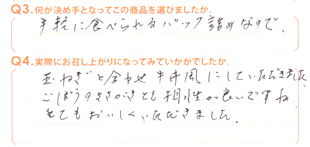 Q3.何が決め手となってこの商品を選びましたか。
手軽に食べられるパック詰めなので。
Q4.実際にお召し上がりになってみていかがでしたか。
玉ねぎと合わせ牛丼風にしていただきました
ごぼうのささがきとも相性が良いですね
とてもおいしくいただきました。